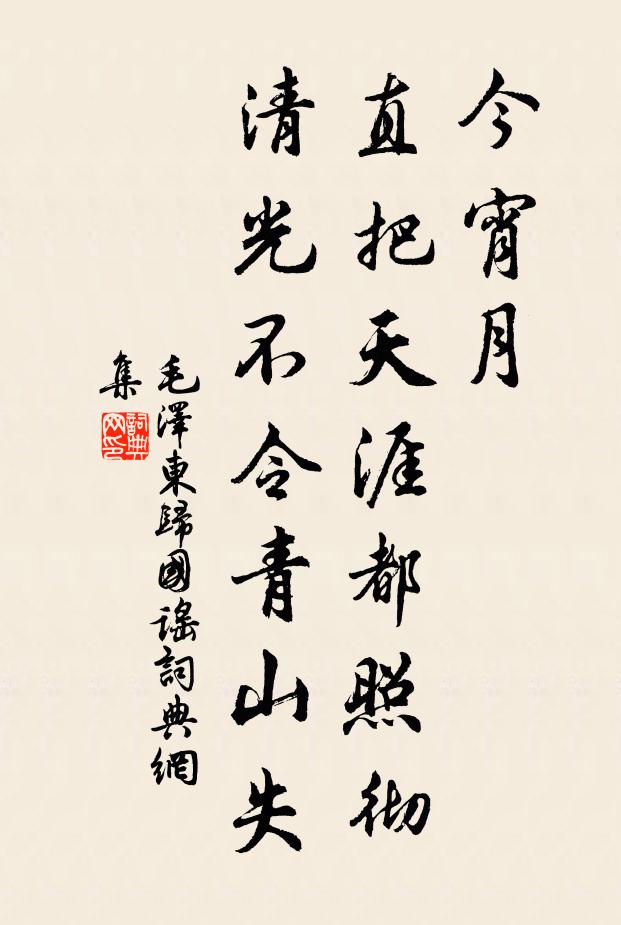 今宵月
直把天涯都照彻
清光不令青山失
毛澤東歸國謠詞典網
集
詞典
网印